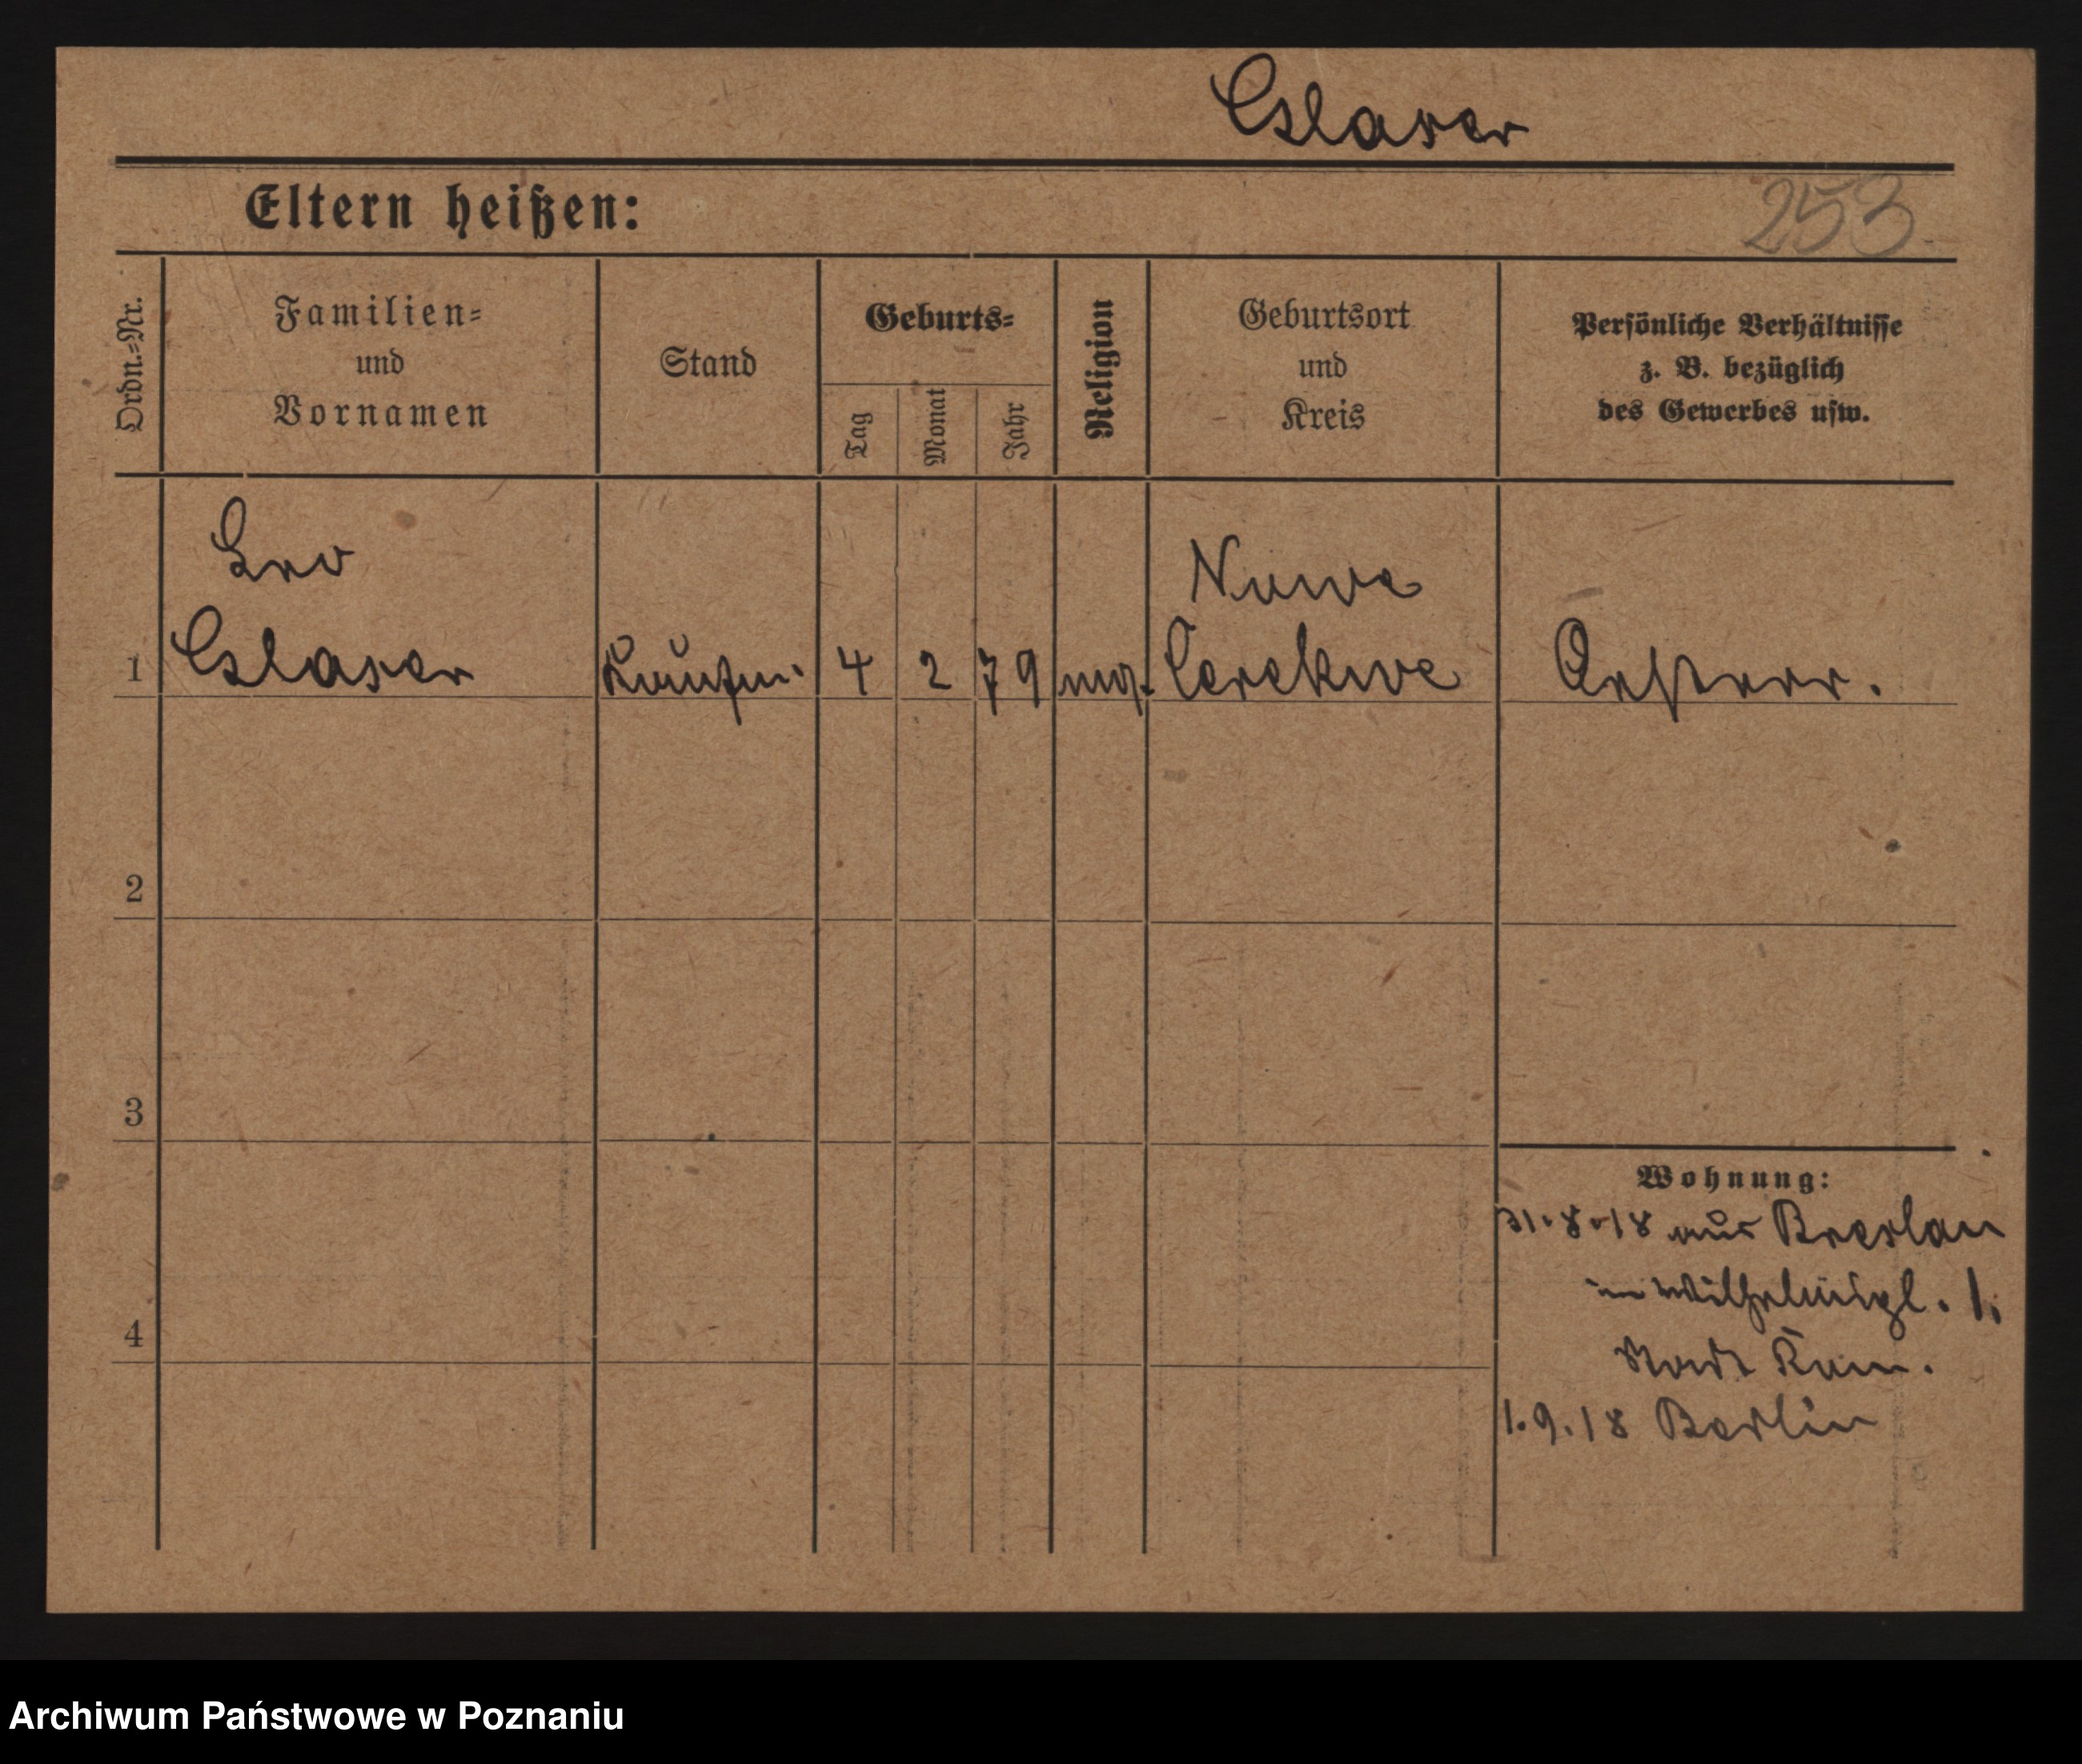 Glaser
Eltern heißen:
253
Ordn.=Nr.
Familien=
und
Vornamen
Stand
Geburts=
Tag
Monat
Jahr
Religion
Geburtsort
und
Kreis
Persönliche Verhältnisse
z. B. bezüglich
des Gewerbes usw.
1
Leo
Glaser
Kaufm.
4
2
79
Nowa
Cerekwe
Oesterr.
2
3
4
Wohnung:
31.8.18 aus Breslau
in Wilhelmspl. 1.
1.9.18 Berlin
Archiwum Państwowe w Poznaniu